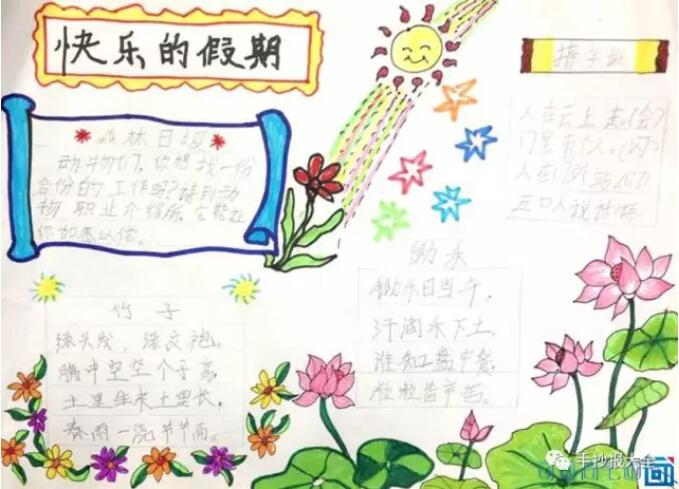 快乐的假期
猜字谜
森林日报
动物们,你想找一份
合份的工作吗?请到动
物职业介绍所,它能让
你如愿以偿。
人在云上走(会)
门里有个人。(闪)
人在门外站
五口人说话
竹子
绿头发,绿衣袍。
腹中空空个子高,
土里生来土里长,
春雨一浇节节高。
锄禾
锄禾日当午,
汗滴禾下土。
谁知盘中餐,
粒粒皆辛苦。
手抄报大全